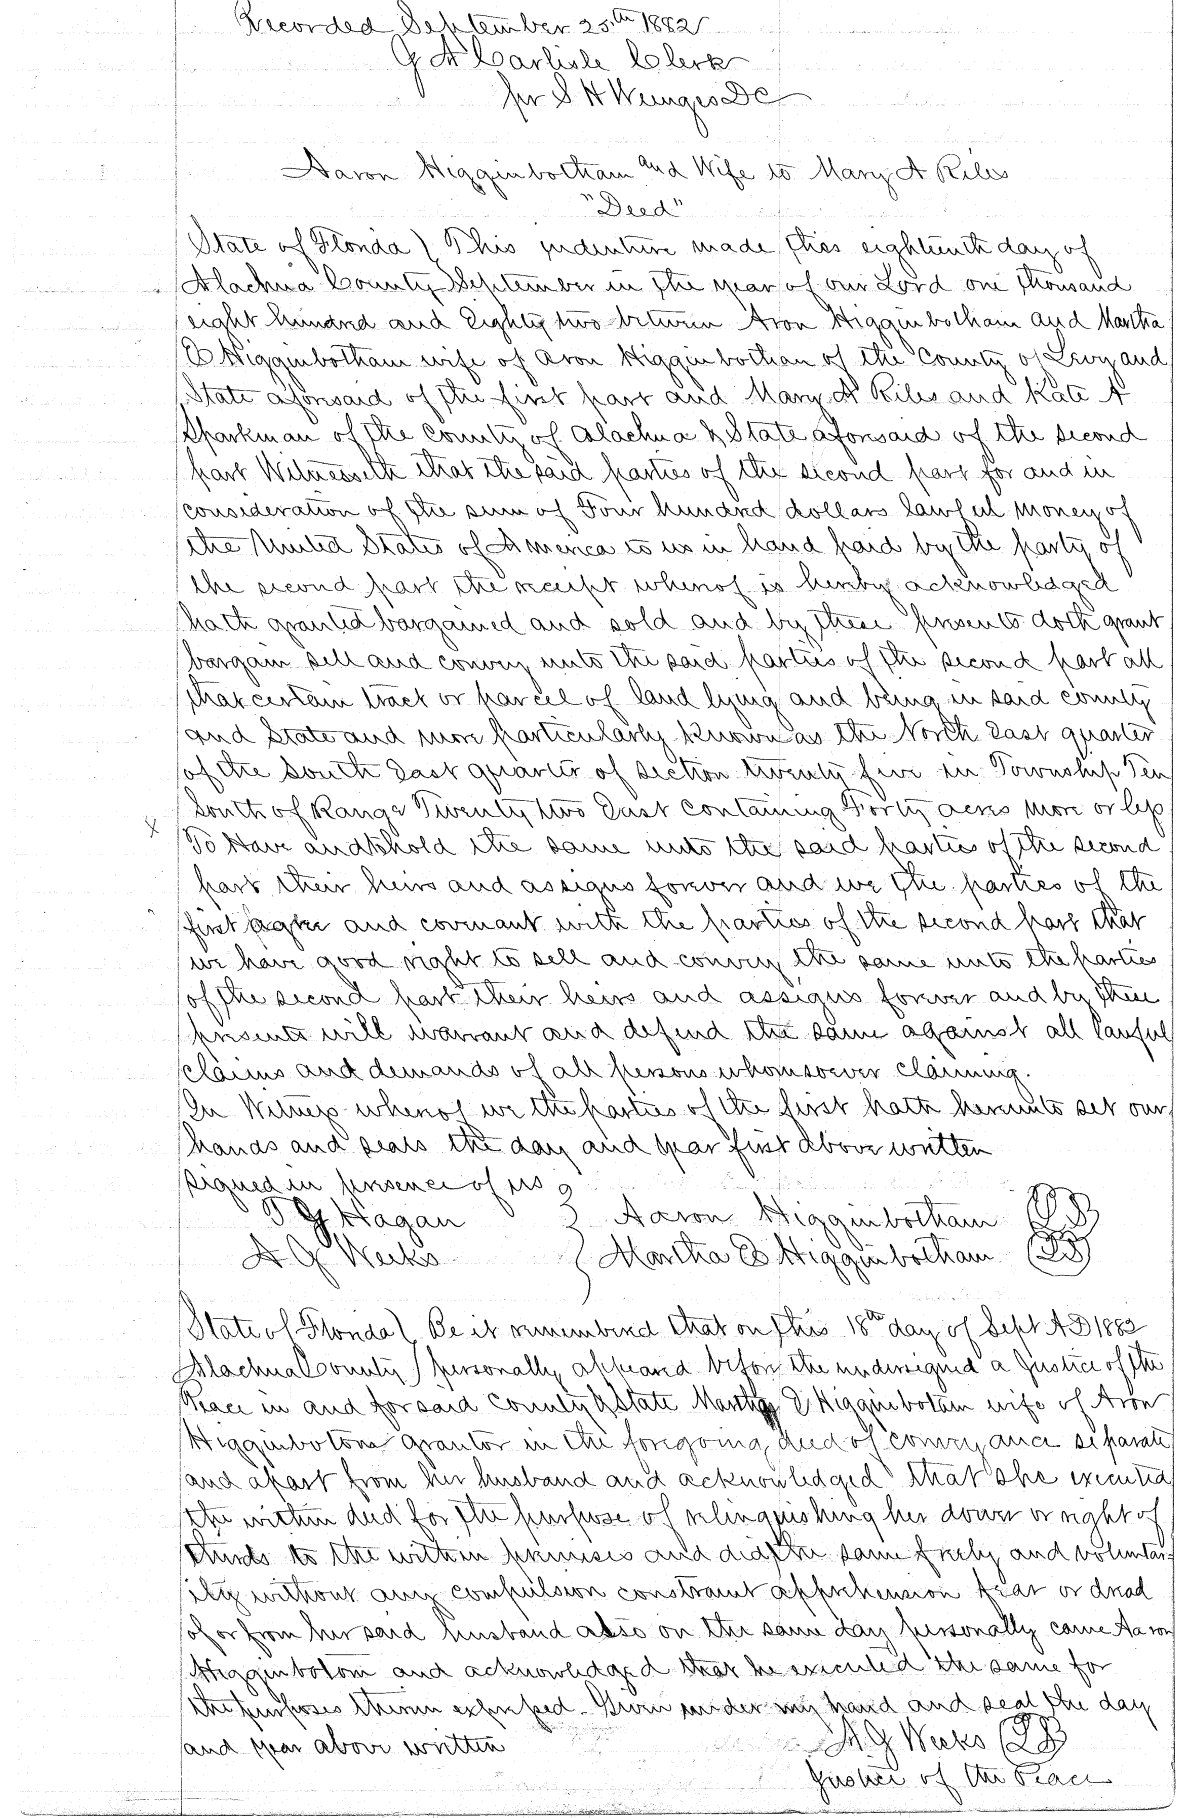 Recorded September 25th 1882
G A Carlisle Clerk
per S H Wienges DC
Aaron Higginbotham and Wife to Mary A Riles
"Deed"
State of Florida ) This indenture made this eighteenth day of
Alachua County September in the year of our Lord one thousand
eight hundred and Eighty two between Aron Higginbotham and Martha
E Higginbotham wife of Aron Higginbotham of the County of Levy and
State aforesaid of the first part and Mary A Riles and Kate A
Sparkman of the County of Alachua & State aforesaid of the second
part Witnesseth that the said parties of the second part for and in
consideration of the sum of Four hundred dollars lawful money of
the United States of America to us in hand paid by the party of
the second part the receipt whereof is hereby acknowledged
hath granted bargained and sold and by these presents doth grant
bargain sell and convey unto the said parties of the second part all
that certain tract or parcel of land lying and being in said county
and State and more particularly known as the North East quarter
of the South East quarter of section twenty five in Township Ten
South of Range Twenty two East containing Forty acres more or less
x
To Have and hold the same unto the said parties of the second
part their heirs and assigns forever and we the parties of the
first agree and covenant with the parties of the second part that
we have good right to sell and convey the same unto the parties
of the second part their heirs and assigns forever and by these
presents will warrant and defend the same against all lawful
claims and demands of all persons whomsoever claiming.
In Witness whereof we the parties of the first hath hereunto set our
hands and seals the day and year first above written
signed in presence of us
T G Hagan } Aaron Higginbotham (LS)
A G Weeks } Martha E Higginbotham (LS)
State of Florida ) Be it remembered that on this 18th day of Sept AD 1882
Alachua County ) personally appeared before the undersigned a Justice of the
Peace in and for said County & State Martha E Higginbotam wife of Aron
Higginbotom grantor in the foregoing deed of conveyance separate
and apart from her husband and acknowledged that she executed
the within deed for the purpose of relinquishing her dower or right of
thirds to the within premises and did the same freely and voluntar-
ily without any compulsion constraint apprehension fear or dread
of or from her said husband also on the same day personally came Aaron
Higginbotom and acknowledged that he executed the same for
the purposes therein expressed. Given under my hand and seal the day
and year above written A. G Weeks (LS)
Justice of the Peace